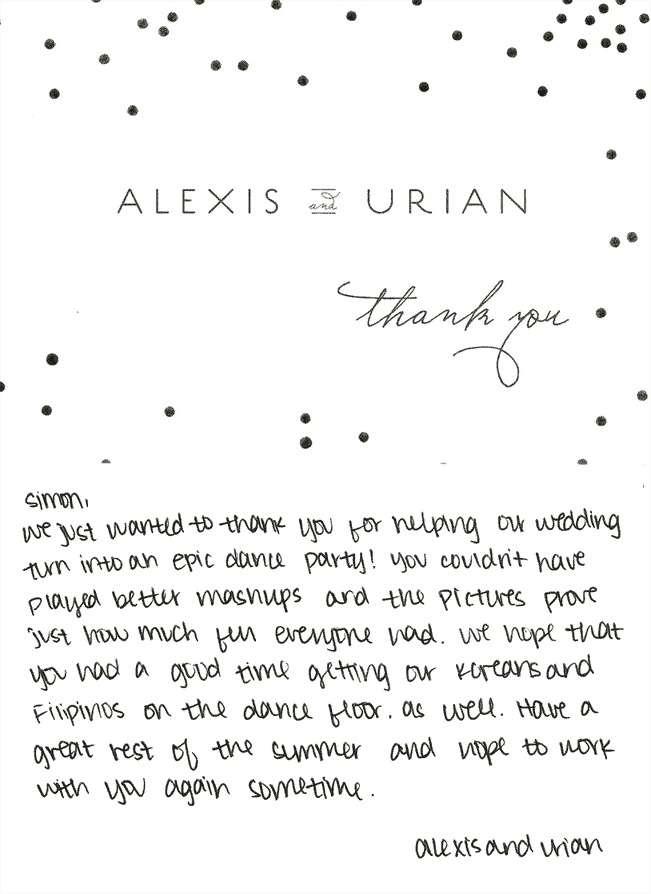 ALEXIS and URIAN
thank you
simon,
we just wanted to thank you for helping our wedding
turn into an epic dance party! you couldn't have
played better mashups and the pictures prove
just how much fun everyone had. we hope that
you had a good time getting our koreans and
Filipinos on the dance floor. as well. Have a
great rest of the summer and hope to work
with you again sometime.
alexis and urian